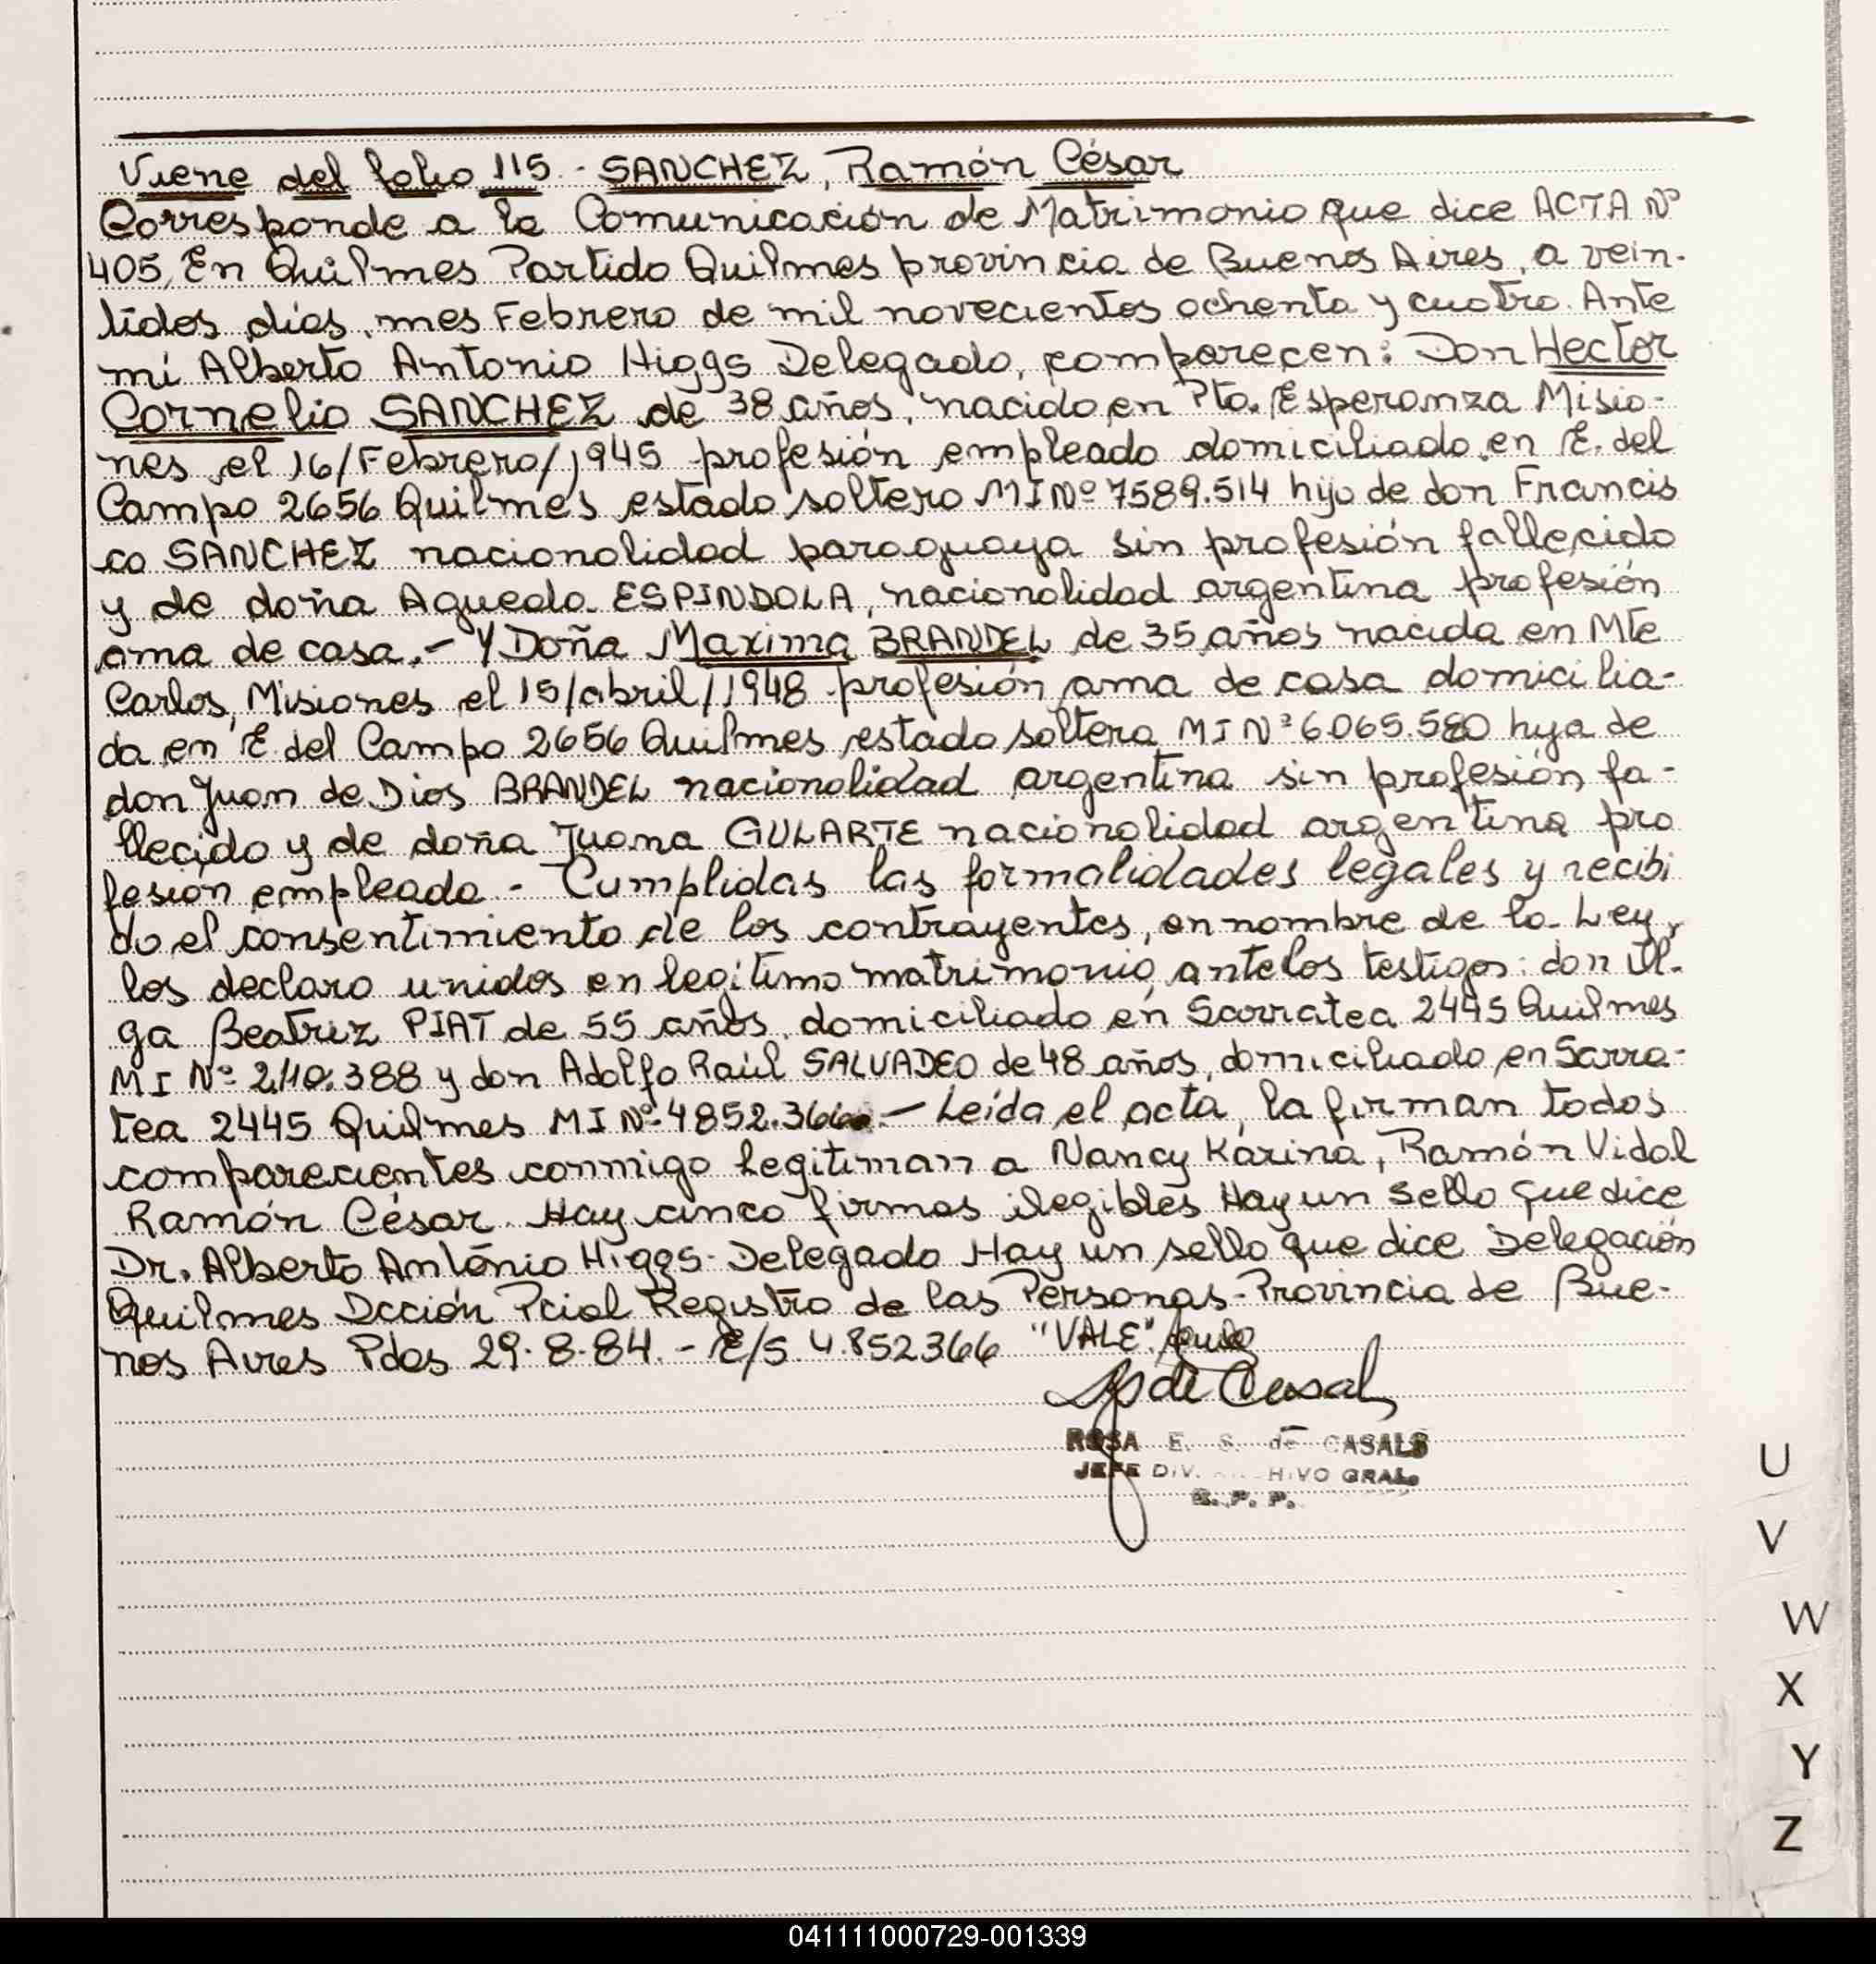 Viene del folio 115 - SANCHEZ, Ramón César
Corresponde a la Comunicación de Matrimonio que dice ACTA Nº
405, En Quilmes Partido Quilmes provincia de Buenos Aires, a vein-
tidos días, mes Febrero de mil novecientos ochenta y cuatro. Ante
mi Alberto Antonio Higgs Delegado, comparecen: Don Hector
Cornelio SANCHEZ de 38 años, nacido en Pto. Esperanza Misio-
nes el 16/Febrero/1945 profesión empleado domiciliado en E. del
Campo 2656 Quilmes estado soltero MI Nº 7589.514 hijo de don Francis
co SANCHEZ nacionalidad paraguaya sin profesión fallecido
y de doña Agueda ESPINDOLA, nacionalidad argentina profesión
ama de casa.- Y Doña Maxima BRANDEL de 35 años nacida en Mte
Carlos, Misiones el 15/abril/1948 profesión ama de casa domicilia-
da en E. del Campo 2656 Quilmes estado soltera MI Nº 6065.580 hija de
don Juan de Dios BRANDEL nacionalidad argentina sin profesión, fa-
llecido y de doña Juana GULARTE nacionalidad argentina pro
fesión empleada - Cumplidas las formalidades legales y recibi
do el consentimiento de los contrayentes, en nombre de la Ley,
los declaro unidos en legítimo matrimonio, ante los testigos: don Il-
ga Beatriz PIAT de 55 años, domiciliado en Sarratea 2445 Quilmes
MI Nº 2.110.388 y don Adolfo Raúl SALVADEO de 48 años, domiciliado en Sarra-
tea 2445 Quilmes MI Nº 4852.366.- Leída el acta, la firman todos
comparecientes conmigo Legitiman a Nancy Karina, Ramón Vidal
Ramón César. Hay cinco firmas ilegibles Hay un Sello que dice
Dr. Alberto António Higgs - Delegado Hay un sello que dice Delegación
Quilmes Dcción Pcial Registro de las Personas - Provincia de Bue-
nos Aires Pdas 29.8.84. - E/S. 4.852366 "VALE"
de Casals
ROSA E. S. de CASALS
JEFE DIV. HIVO GRAL.
R. P. P.
U
V
W
X
Y
Z
041111000729-001339